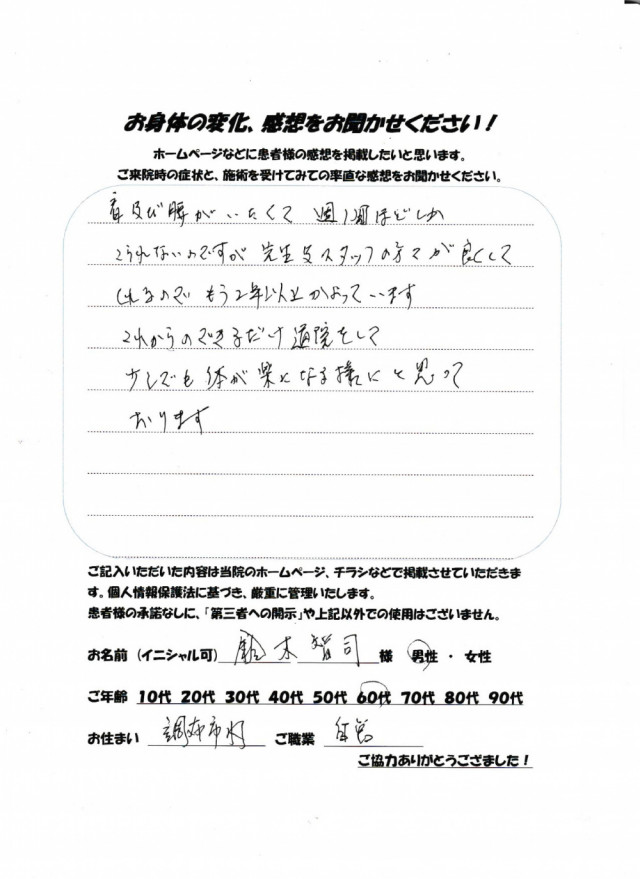 お身体の変化、感想をお聞かせください！
ホームページなどに患者様の感想を掲載したいと思います。
ご来院時の症状と、施術を受けてみての率直な感想をお聞かせください。
及び腰がいたくて 週1回ほどしか
これないのですが 先生及スタッフの方々が良くして
くれるので もう2年以上かよっています
これからのできるだけ通院をして
少しでも体が楽になる様にと思って
おります
ご記入いただいた内容は当院のホームページ、チラシなどで掲載させていただきま
す。個人情報保護法に基づき、厳重に管理いたします。
患者様の承諾なしに、「第三者への開示」や上記以外での使用はございません。
お名前（イニシャル可） 鈴木智司 様 男性 ・ 女性
ご年齢 10代 20代 30代 40代 50代 60代 70代 80代 90代
お住まい 調布市 ご職業 自営
ご協力ありがとうござました！